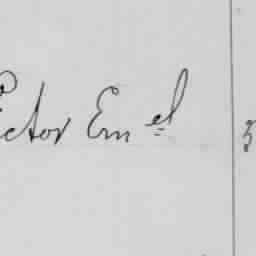 Victor Em el 3